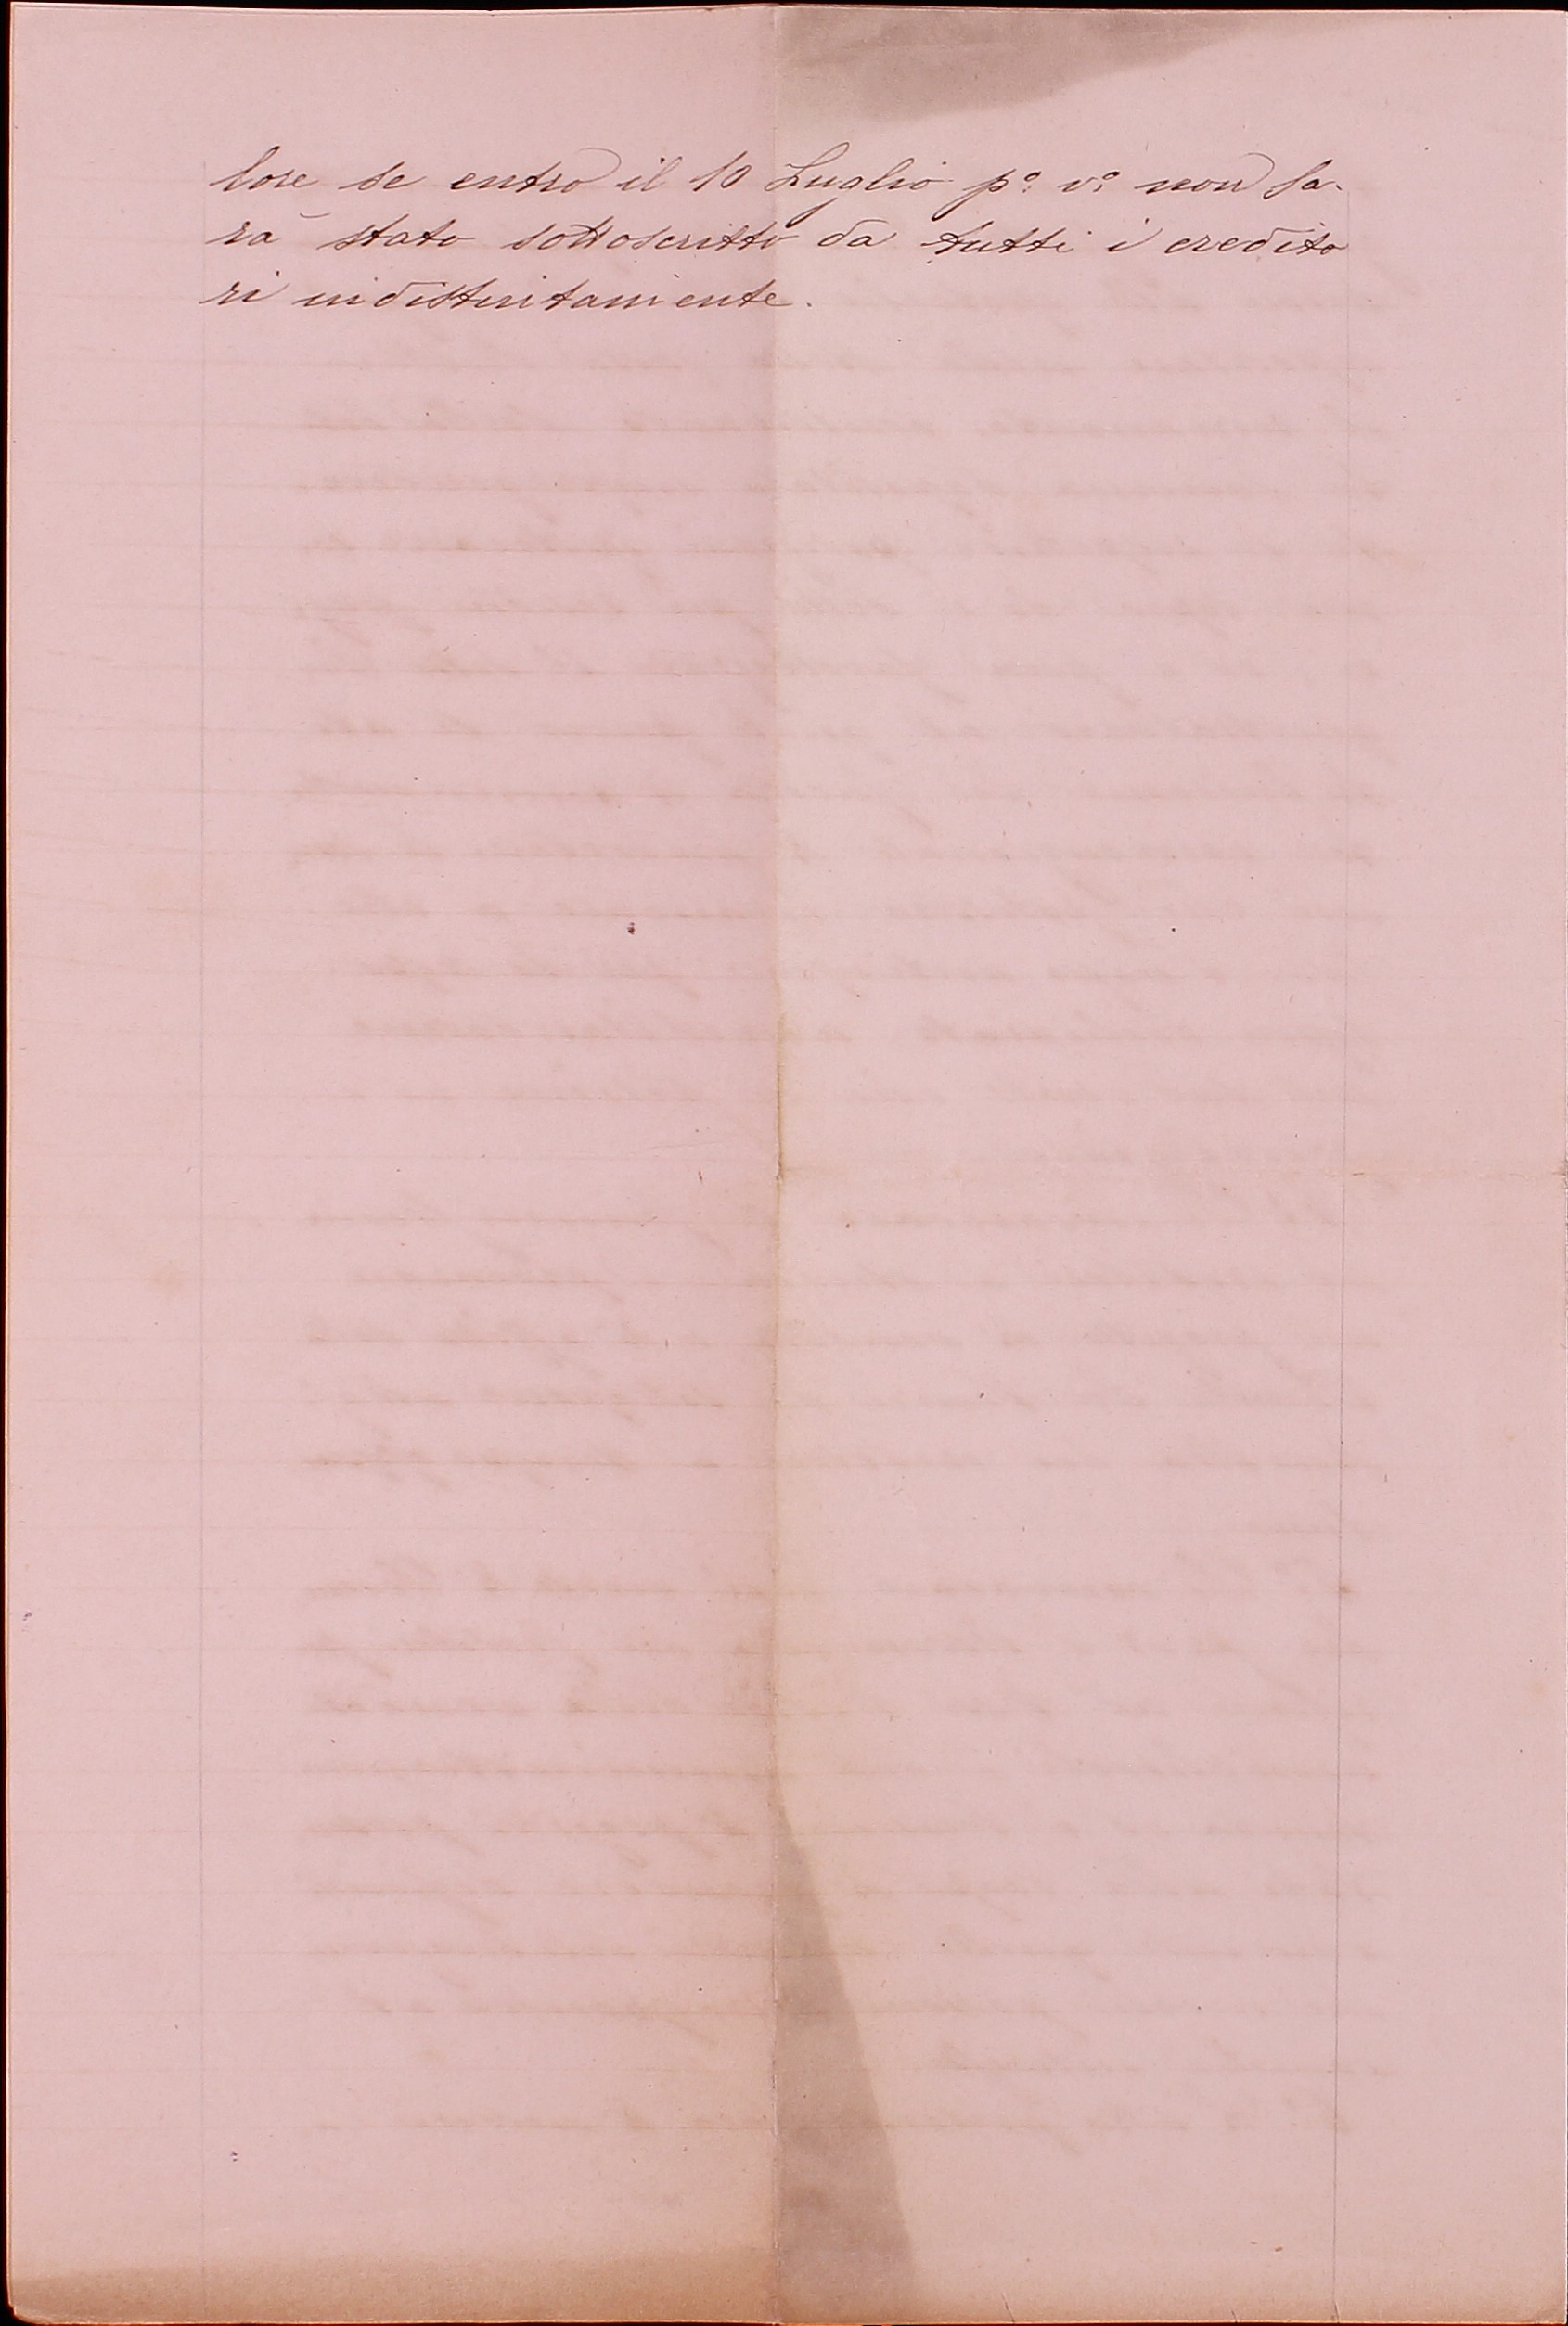 lore se entro il 10 Luglio p.º v.º non sa-
rà stato sottoscritto da tutti i credito
ri indistintamente.